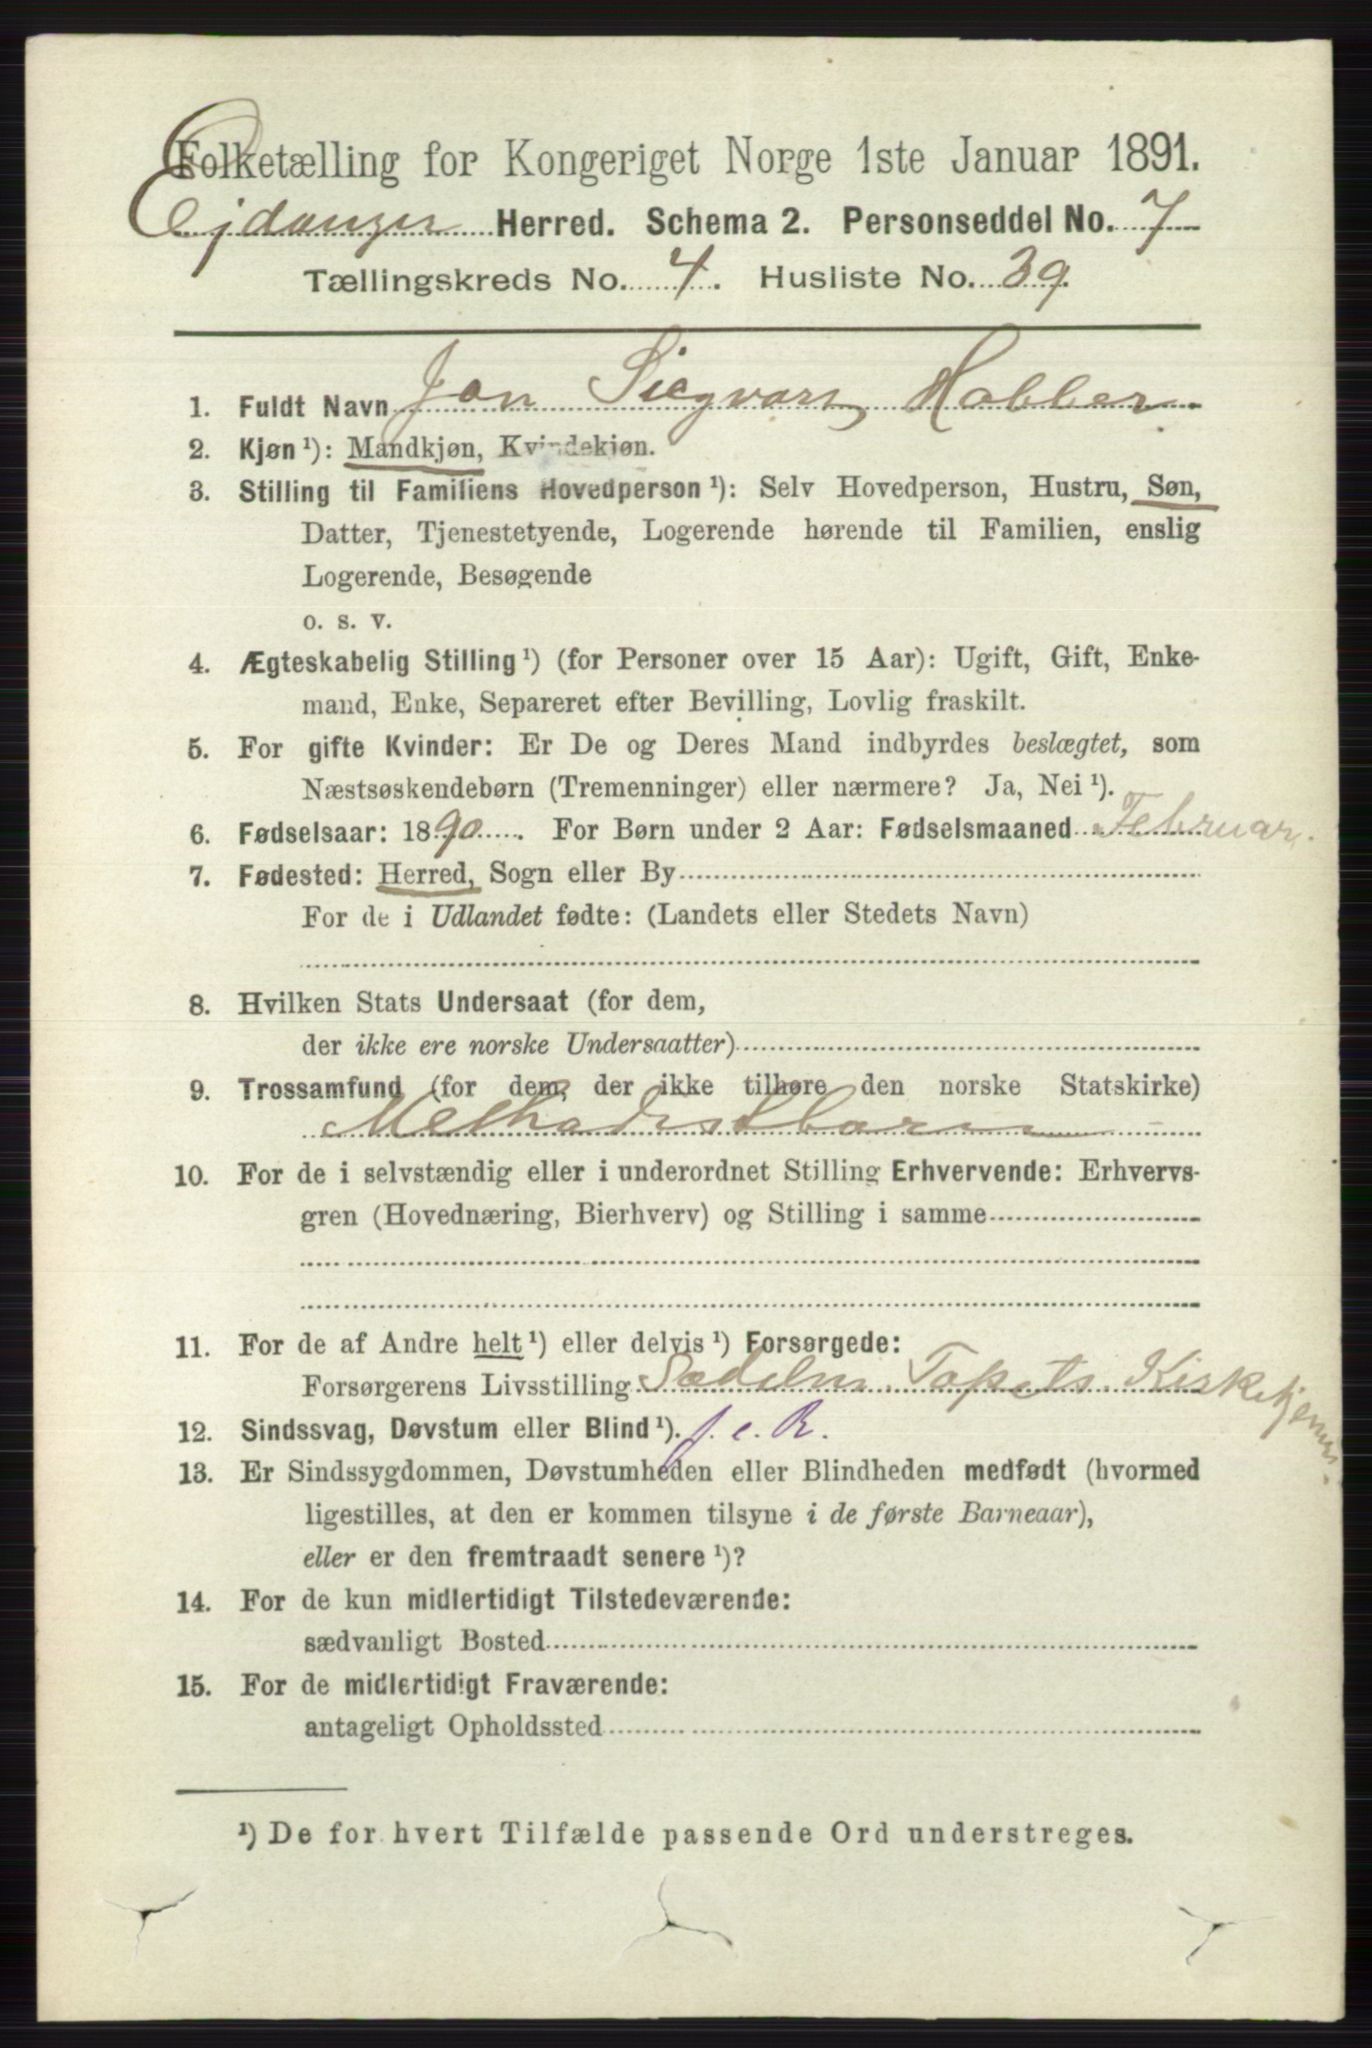 Folketælling for Kongeriget Norge 1ste Januar 1891.
Ejdanger Herred. Schema 2. Personseddel No. 7
Tællingskreds No. 4. Husliste No. 39.
1. Fuldt Navn Jon Sigvart Habber.
2. Kjøn ¹): Mandkjøn, Kvindekjøn.
3. Stilling til Familiens Hovedperson ¹): Selv Hovedperson, Hustru, Søn,
Datter, Tjenestetyende, Logerende hørende til Familien, enslig
Logerende, Besøgende
o. s. v.
4. Ægteskabelig Stilling ¹) (for Personer over 15 Aar): Ugift, Gift, Enke-
mand, Enke, Separeret efter Bevilling, Lovlig fraskilt.
5. For gifte Kvinder: Er De og Deres Mand indbyrdes beslægtet, som
Næstsøskendebørn (Tremenninger) eller nærmere? Ja, Nei ¹).
6. Fødselsaar: 1890. For Børn under 2 Aar: Fødselsmaaned Februar.
7. Fødested: Herred, Sogn eller By
For de i Udlandet fødte: (Landets eller Stedets Navn)
8. Hvilken Stats Undersaat (for dem,
der ikke ere norske Undersaatter)
9. Trossamfund (for dem, der ikke tilhøre den norske Statskirke)
Methodistbarn
10. For de i selvstændig eller i underordnet Stilling Erhvervende: Erhvervs-
gren (Hovednæring, Bierhverv) og Stilling i samme
11. For de af Andre helt ¹) eller delvis ¹) Forsørgede:
Forsørgerens Livsstilling Tapets. Kirketjener.
12. Sindssvag, Døvstum eller Blind ¹). f. e. R.
13. Er Sindssygdommen, Døvstumheden eller Blindheden medfødt (hvormed
ligestilles, at den er kommen tilsyne i de første Barneaar),
eller er den fremtraadt senere ¹)?
14. For de kun midlertidigt Tilstedeværende:
sædvanligt Bosted
15. For de midlertidigt Fraværende:
antageligt Opholdssted
¹) De for hvert Tilfælde passende Ord understreges.